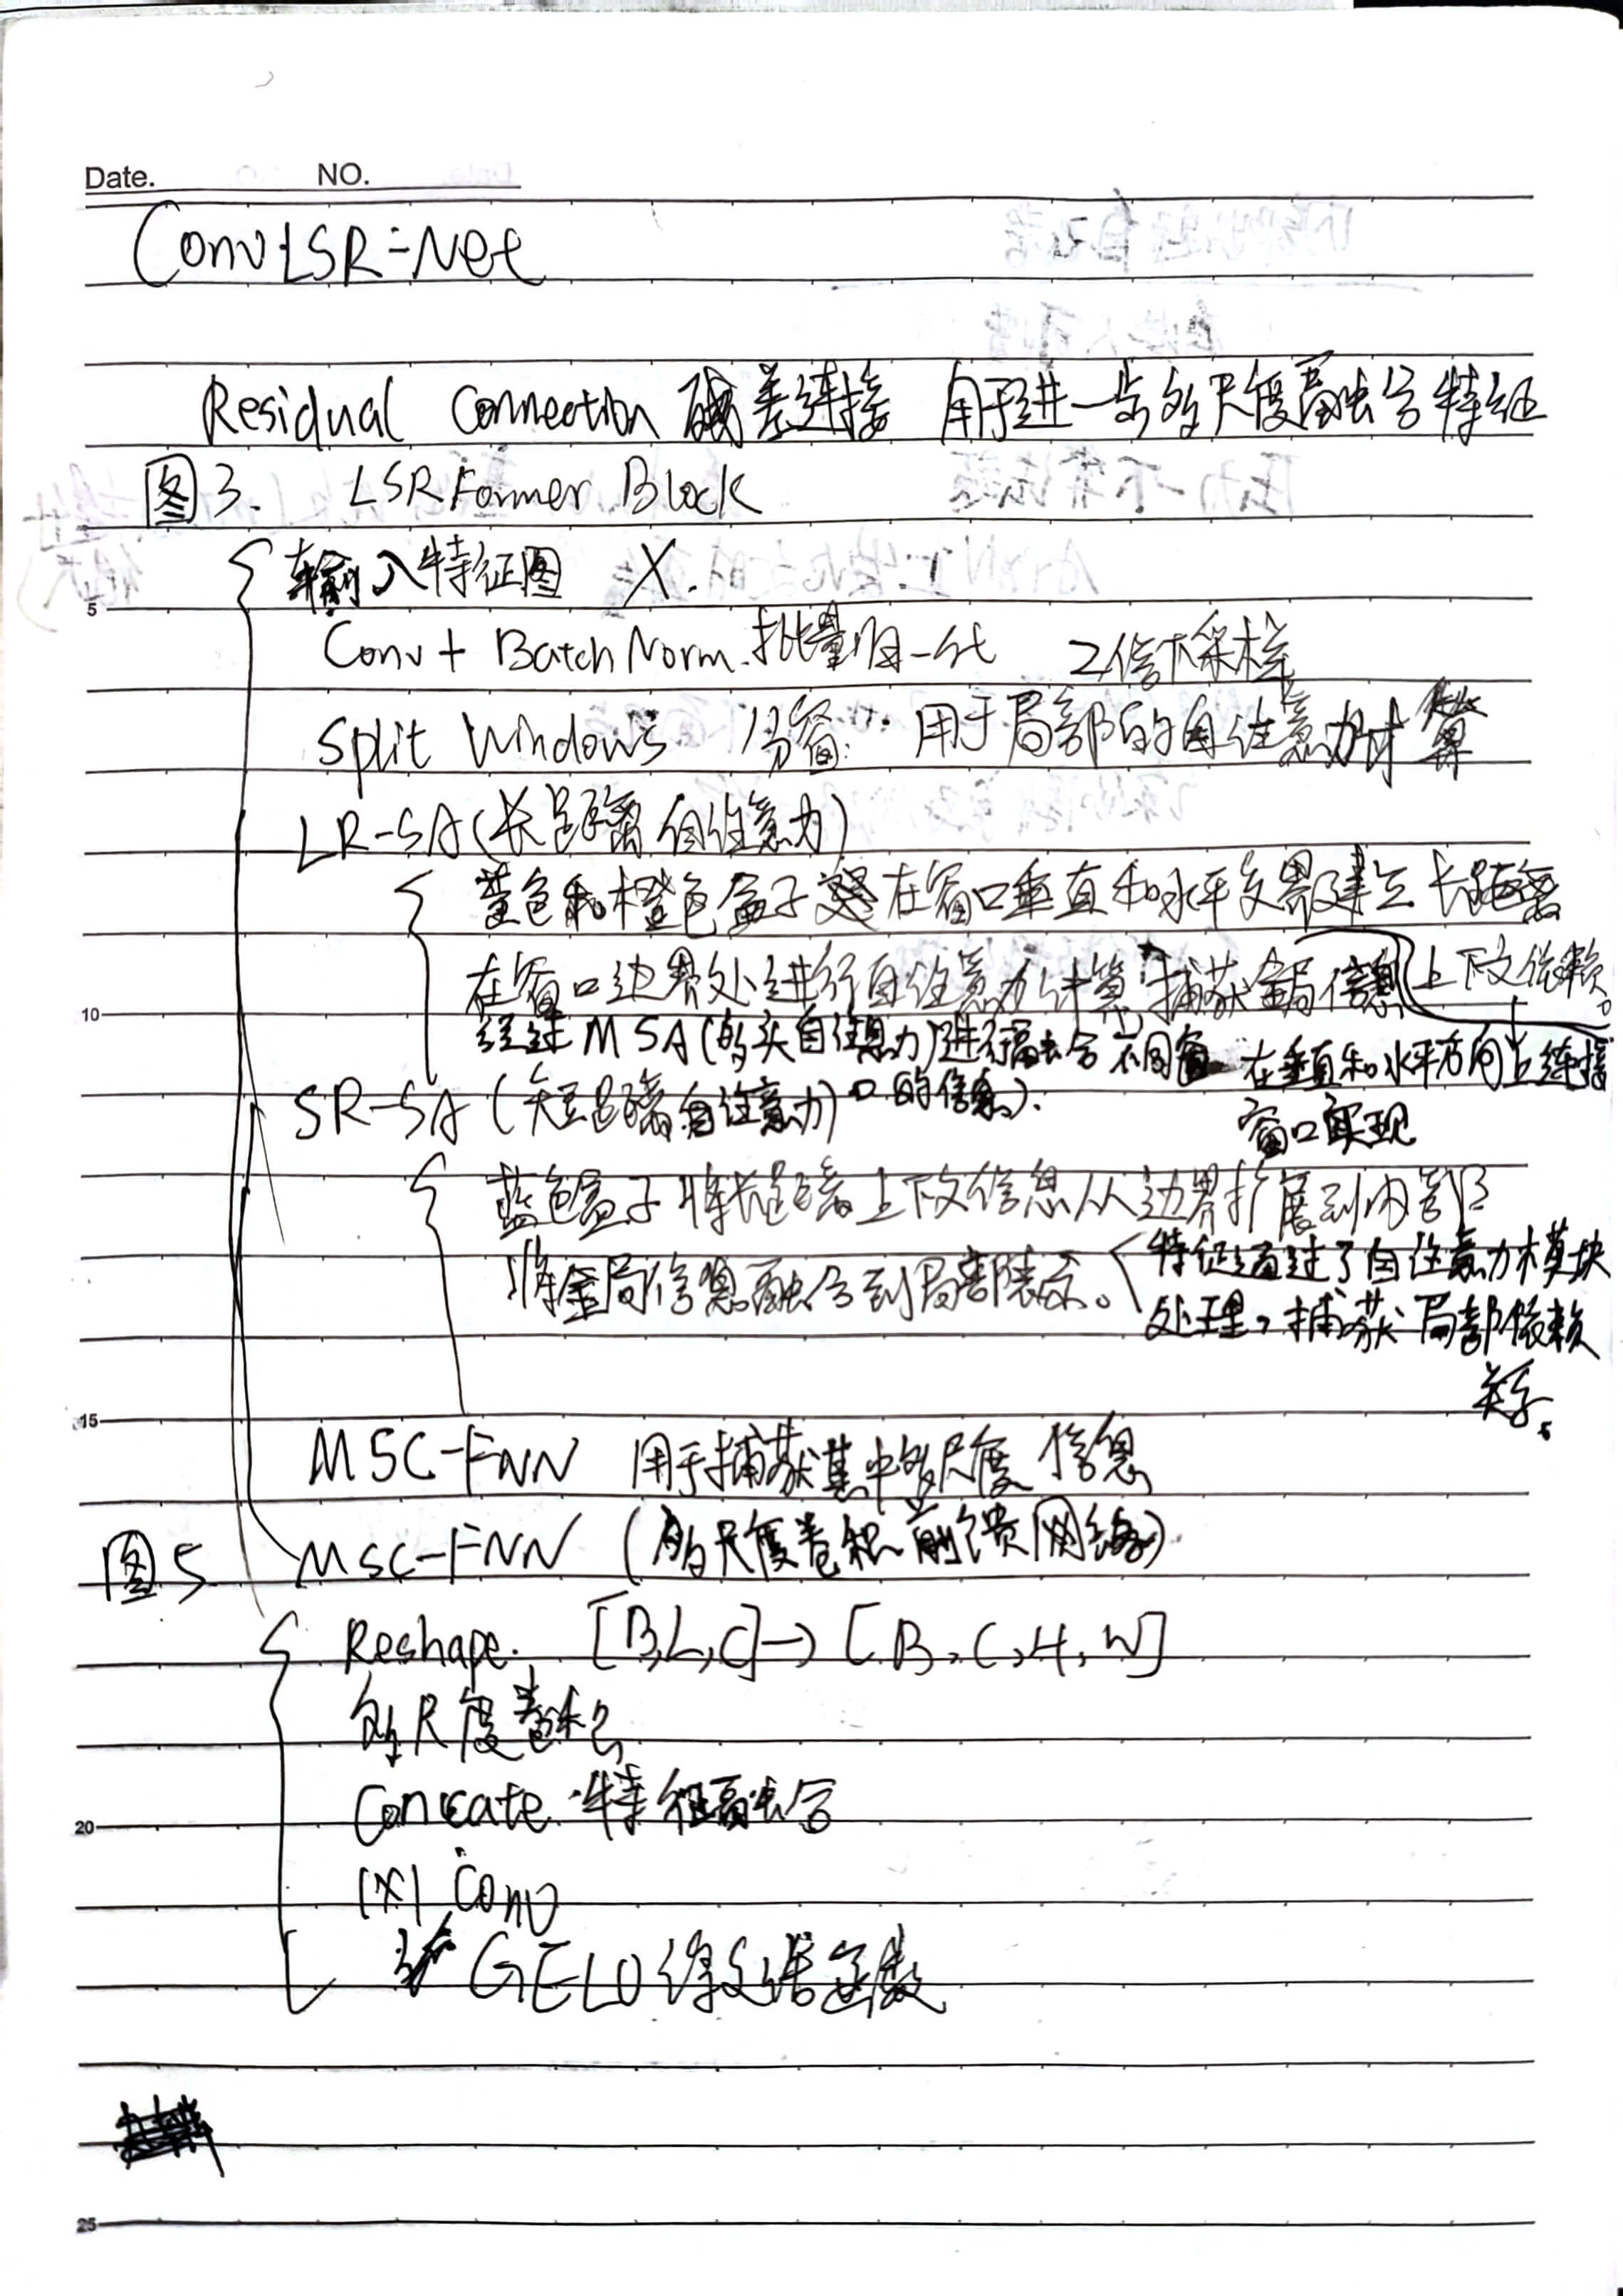 Date. NO.
ConvLSR-Net
Residual Connection 残差连接 用于进一步多尺度融合特征
图3. LSRFormer Block
输入特征图 X.
5
Conv + BatchNorm. 批量归一化 2倍下采样
Split Windows 分窗: 用于局部的自注意力计算
LR-SA (长距离自注意力)
蓝色和橙色盒子 在窗口垂直和水平交界建立长距离
上下文依赖。
在窗口边界处进行自注意力计算,捕获全局信息
10
经过MSA(多头自注意力)进行融合不同窗
口的信息).
在垂直和水平方向上连接
窗口实现
SR-SA (短距离自注意力)
蓝色盒子 将长距离上下文信息从边界扩展到内部
将全局信息融合到局部表示。
特征通过了自注意力模块
处理,捕获局部依赖
关系。
15
MSC-FNN 用于捕获集中多尺度信息
图5 MSC-FNN (多尺度卷积前馈网络)
Reshape. [B,L,C]→[B,C,H,W]
多尺度卷积
Concate 特征融合
20
1X1 Conv
GELU 激活函数
25